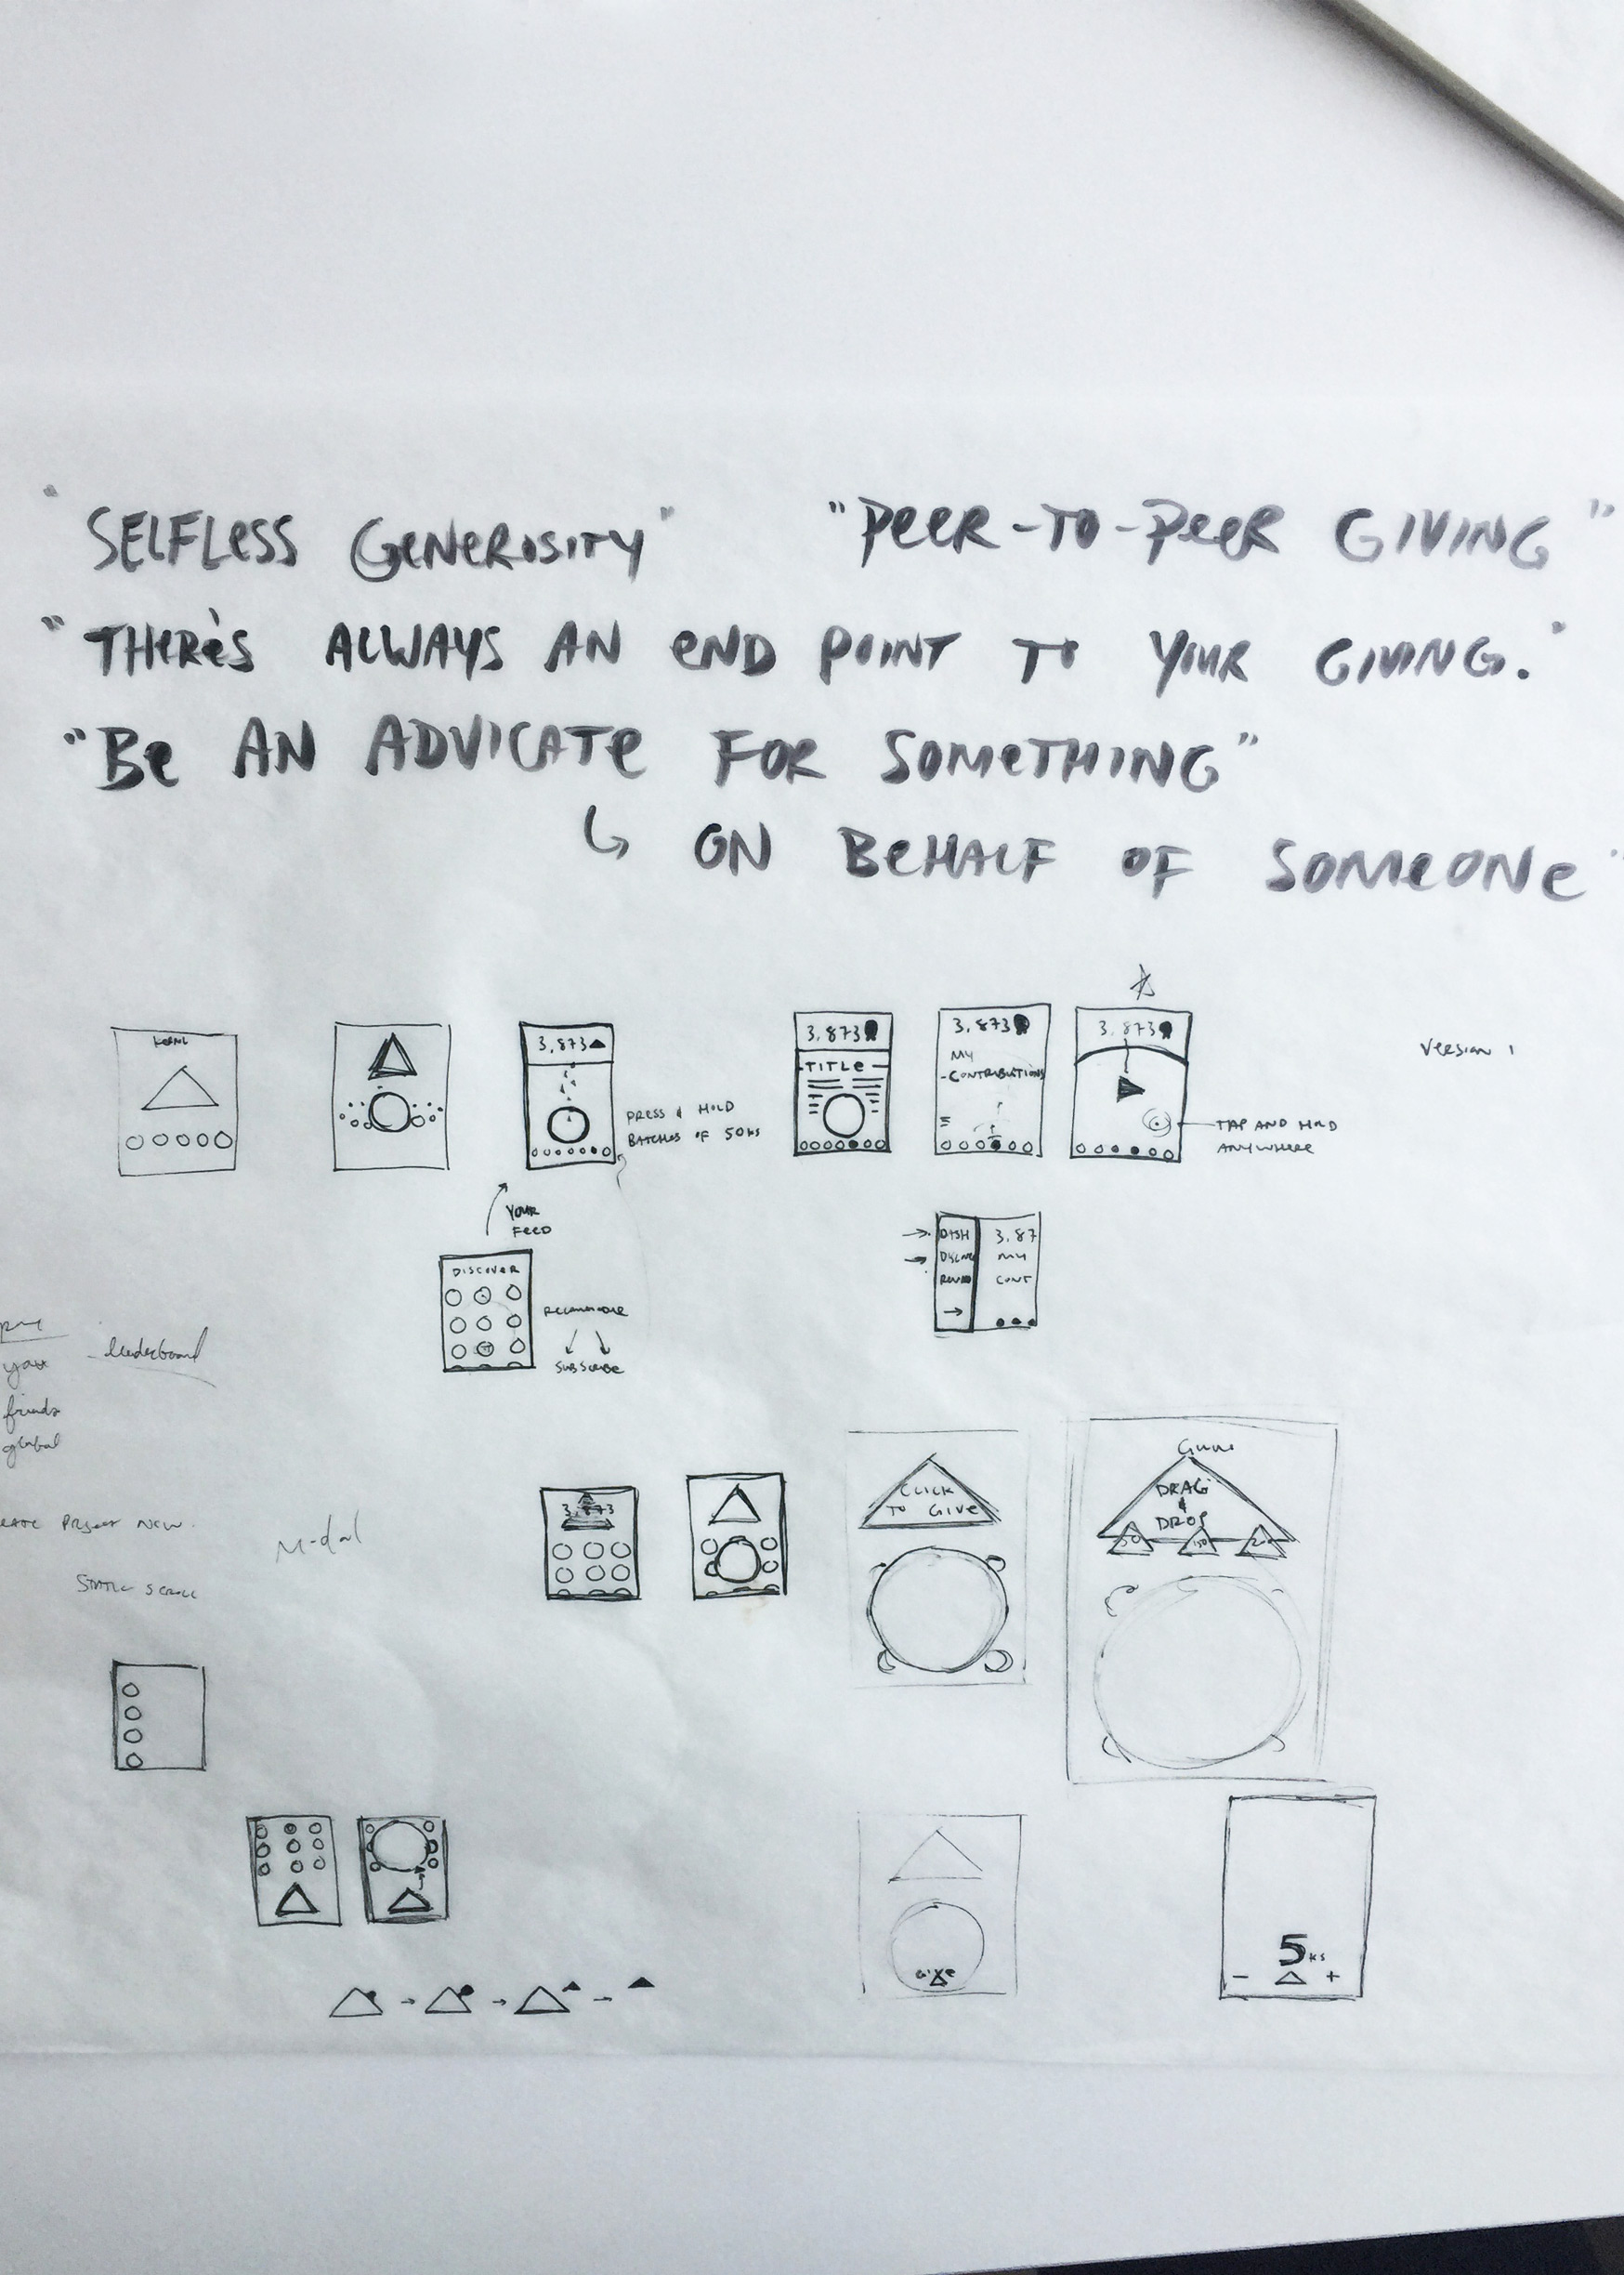 "SELFLESS GENEROSITY" "PEER-TO-PEER GIVING"
"THERE'S ALWAYS AN END POINT TO YOUR GIVING."
"BE AN ADVICATE FOR SOMETHING"
↳ ON BEHALF OF SOMEONE"
3,873
3,873
3,873
3,873
VERSION 1
TITLE
MY
-CONTRIBUTIONS
PRESS & HOLD
BATCHES OF 50 KS
TAP AND HOLD
ANYWHERE
YOUR
FEED
DISCOVER
DASH
3,87
MY
CONT
SUBSCRIBE
leaderboard
you
friends
global
3,873
PROJECT NEW
STATIC SCROLL
CLICK
TO GIVE
DRAG
&
DROP
50
GIVE
5 KS
- +